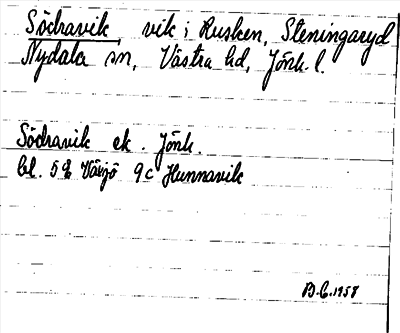 Södravik, vik i Rusken, Steningaryd
Nydala sn, Västra hd, Jönk. l.
Södravik ek. Jönk.
bl. 5E Växjö 9c Hunnavik
B.C. 1958